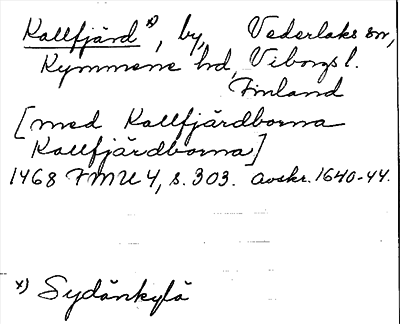 Kallfjärd x), by, Vederlaks sn,
Kymmene hd, Viborgs l.
Finland
[med Kallfjärdboma
Kallfjärdboma]
1468 FMU 4, s. 303. avskr. 1640-44.
x) Sydänkylä